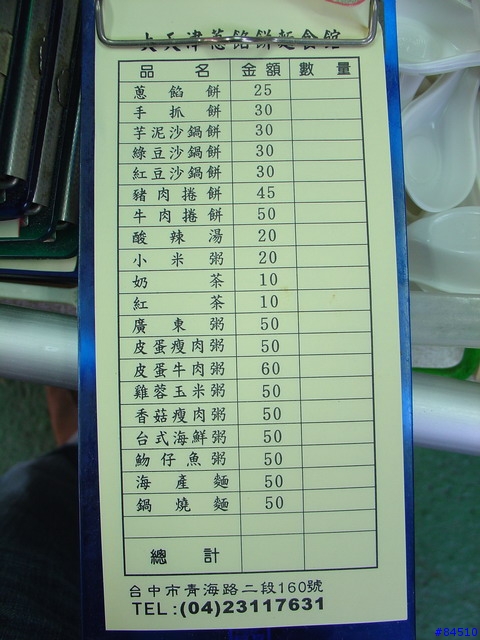 大天津蔥餡餅麵食館
品名 金額 數量
蔥餡餅 25
手抓餅 30
芋泥沙鍋餅 30
綠豆沙鍋餅 30
紅豆沙鍋餅 30
豬肉捲餅 45
牛肉捲餅 50
酸辣湯 20
小米粥 20
奶茶 10
紅茶 10
廣東粥 50
皮蛋瘦肉粥 50
皮蛋牛肉粥 60
雞蓉玉米粥 50
香菇瘦肉粥 50
台式海鮮粥 50
魩仔魚粥 50
海產麵 50
鍋燒麵 50
總計
台中市青海路二段160號
TEL:(04)23117631
#84510